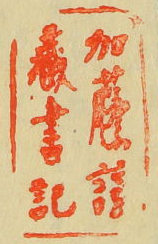 加藤諄
蔵書記